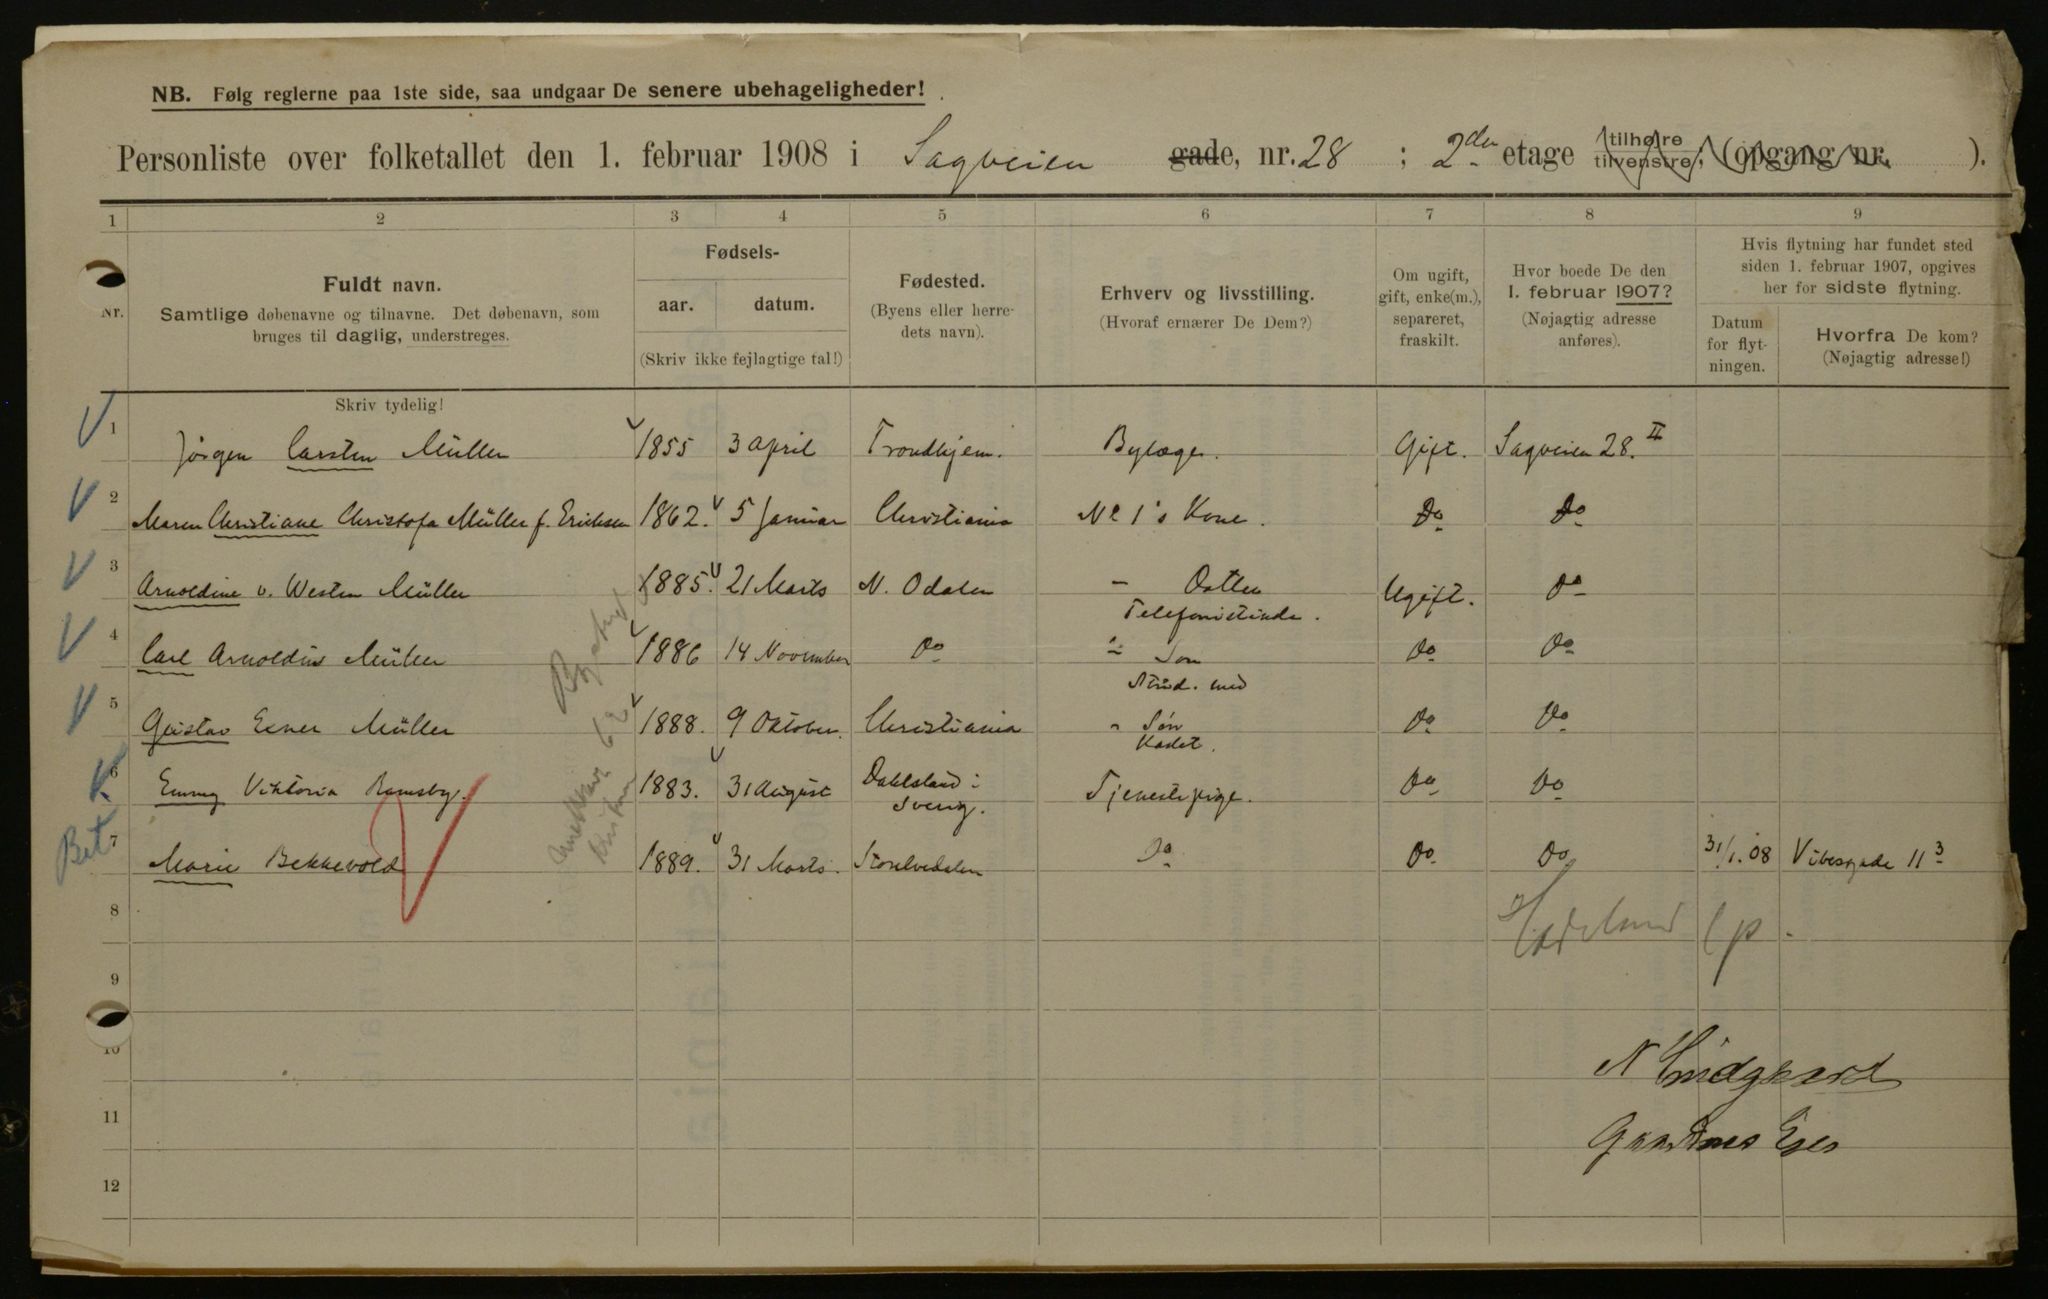 NB. Følg reglerne paa 1ste side, saa undgaar De senere ubehageligheder!
Personliste over folketallet den 1. februar 1908 i Sagveien gade, nr. 28 ; 2den etage tilhøire tilvenstre, (opgang nr. ).
1 2 3 4 5 6 7 8 9
Nr.
Fuldt navn.
Samtlige døbenavne og tilnavne. Det døbenavn, som
bruges til daglig, understreges.
Fødsels-
aar. datum.
(Skriv ikke fejlagtige tal!)
Fødested.
(Byens eller herre-
dets navn).
Erhverv og livsstilling.
(Hvoraf ernærer De Dem?)
Om ugift,
gift, enke(m.),
separeret,
fraskilt.
Hvor boede De den
1. februar 1907?
(Nøjagtig adresse
anføres).
Hvis flytning har fundet sted
siden 1. februar 1907, opgives
her for sidste flytning.
Datum
for flyt-
ningen.
Hvorfra De kom?
(Nøjagtig adresse!)
Skriv tydelig!
1 Jørgen Carsten Müller 1855 3 april Trondhjem. Bylæge. Gift. Sagveien 28. II
2 Maren Christiane Christofa Müller f. Ericksen 1862. 5 Januar Christiania No 1's Kone. Do Do
3 Arnoldine v. Westen Müller 1885. 21 Marts N. Odalen - Datter Ugift. Do
Telefonistinde.
4 Carl Arnoldus Müller 1886 14 November Do - Søn Do Do
Stud. med
5 Gustav Exner Müller 1888. 9 Oktober. Christiania " Søn Do Do
Kadet.
6 Emmy Viktoria Ramsby. 1883. 31 August Dahlsland i Tjenestepige. Do Do
Sverig.
Bet 7 Marie Bekkevold 1889. 31 Marts. Storelvedalen Do Do Do 31/1.08 Vibesgade 11 3
8 Hadeland
9
10
11
12